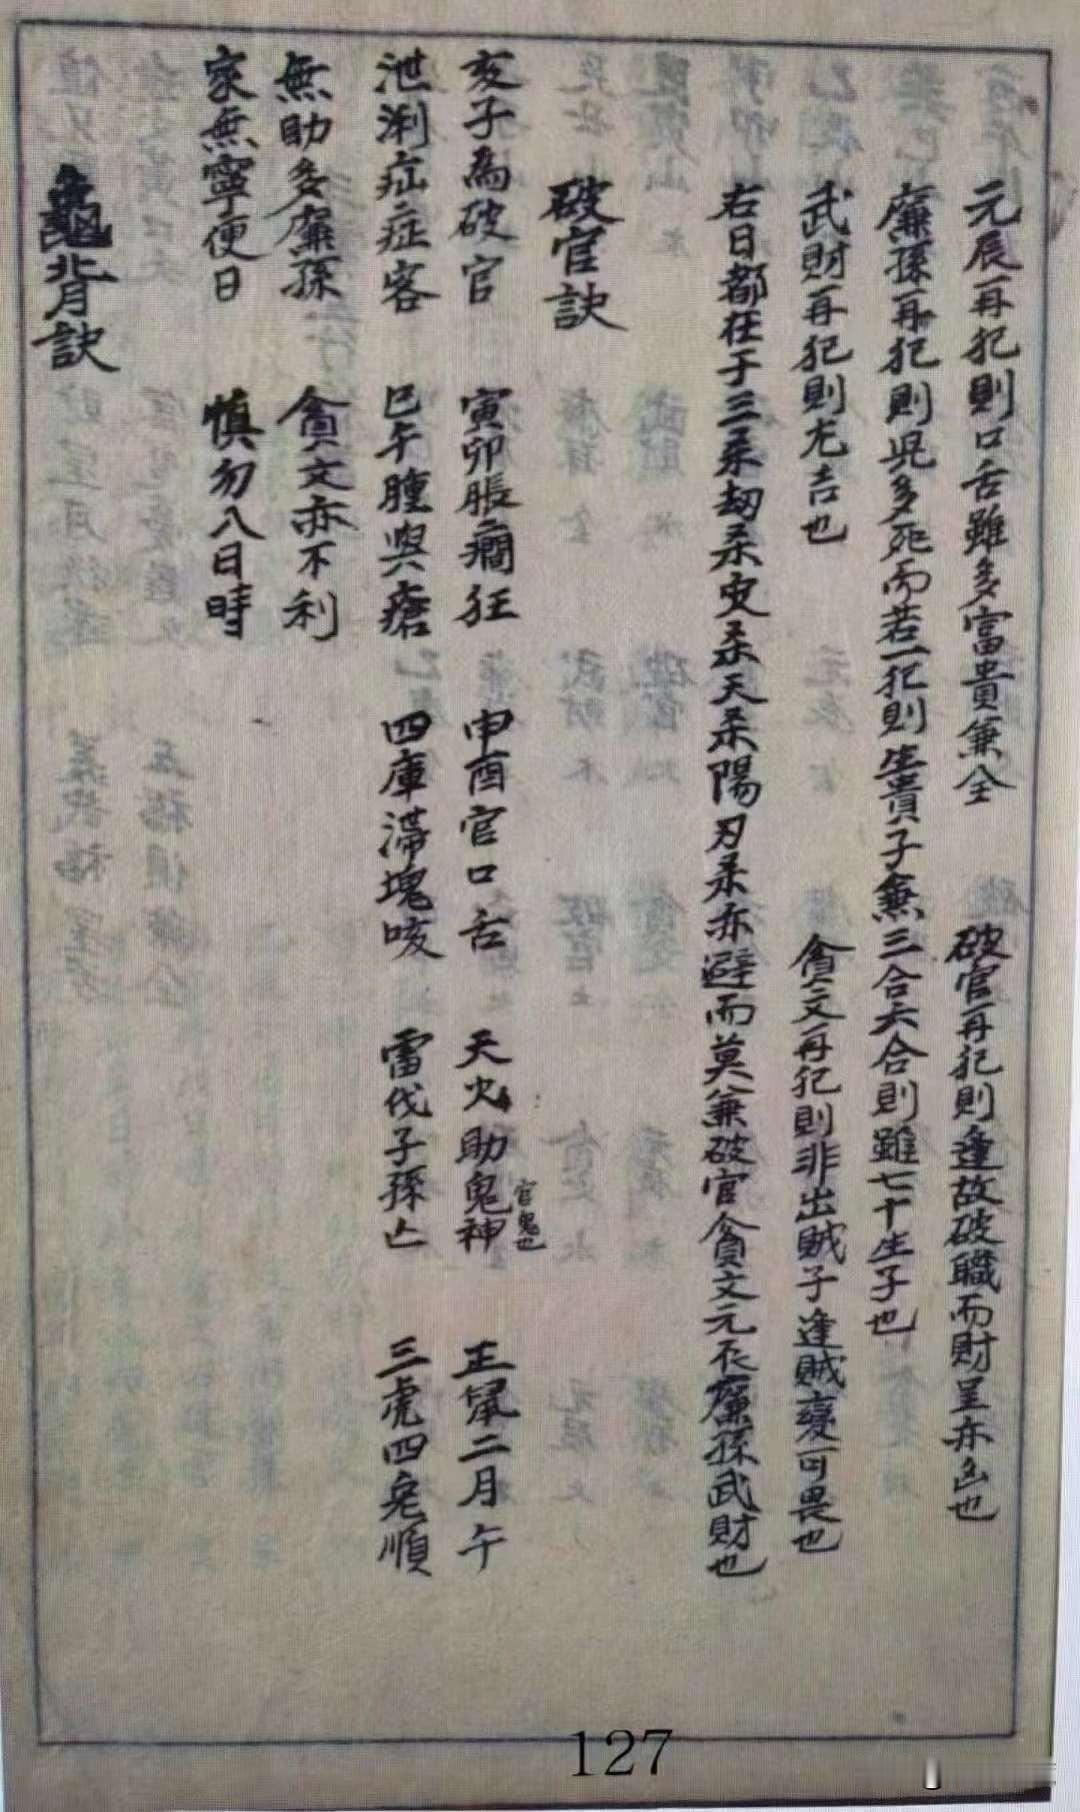 元辰再犯則口舌雖多富貴兼全 破官再犯則逢故破職而財呈亦凶也
廉孫再犯則児多死而若一犯則生貴子兼三合六合則雖七十生子也
武財再犯則尤吉也 貪文再犯則非出賊子逢賊變可畏也
右日都在于三杀劫杀叓杀天杀陽刃杀亦避而莫兼破官貪文元辰廉孫武財也
破官訣
亥子為破官 寅卯脹癎狂 申酉官口舌 天火助鬼神官鬼也 正鼠二月午
泄痢疝症客 巳午腫與瘡 四庫滯塊咳 雷伐子孫亡 三虎四兔順
無助多廉孫 貪文亦不利
家無寧便日 慎勿八日時
龜背訣
127